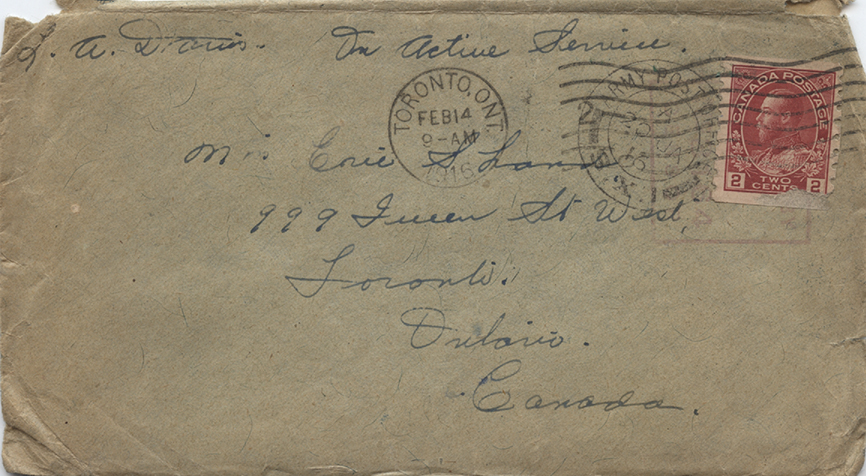 L. A. Davis. On Active Service.
TORONTO, ONT.
FEB 14
9-AM
1916
ARMY POST
CANADA POSTAGE
2 TWO CENTS 2
Mr. Eric S.
999 Queen St West,
Toronto.
Ontario.
Canada.